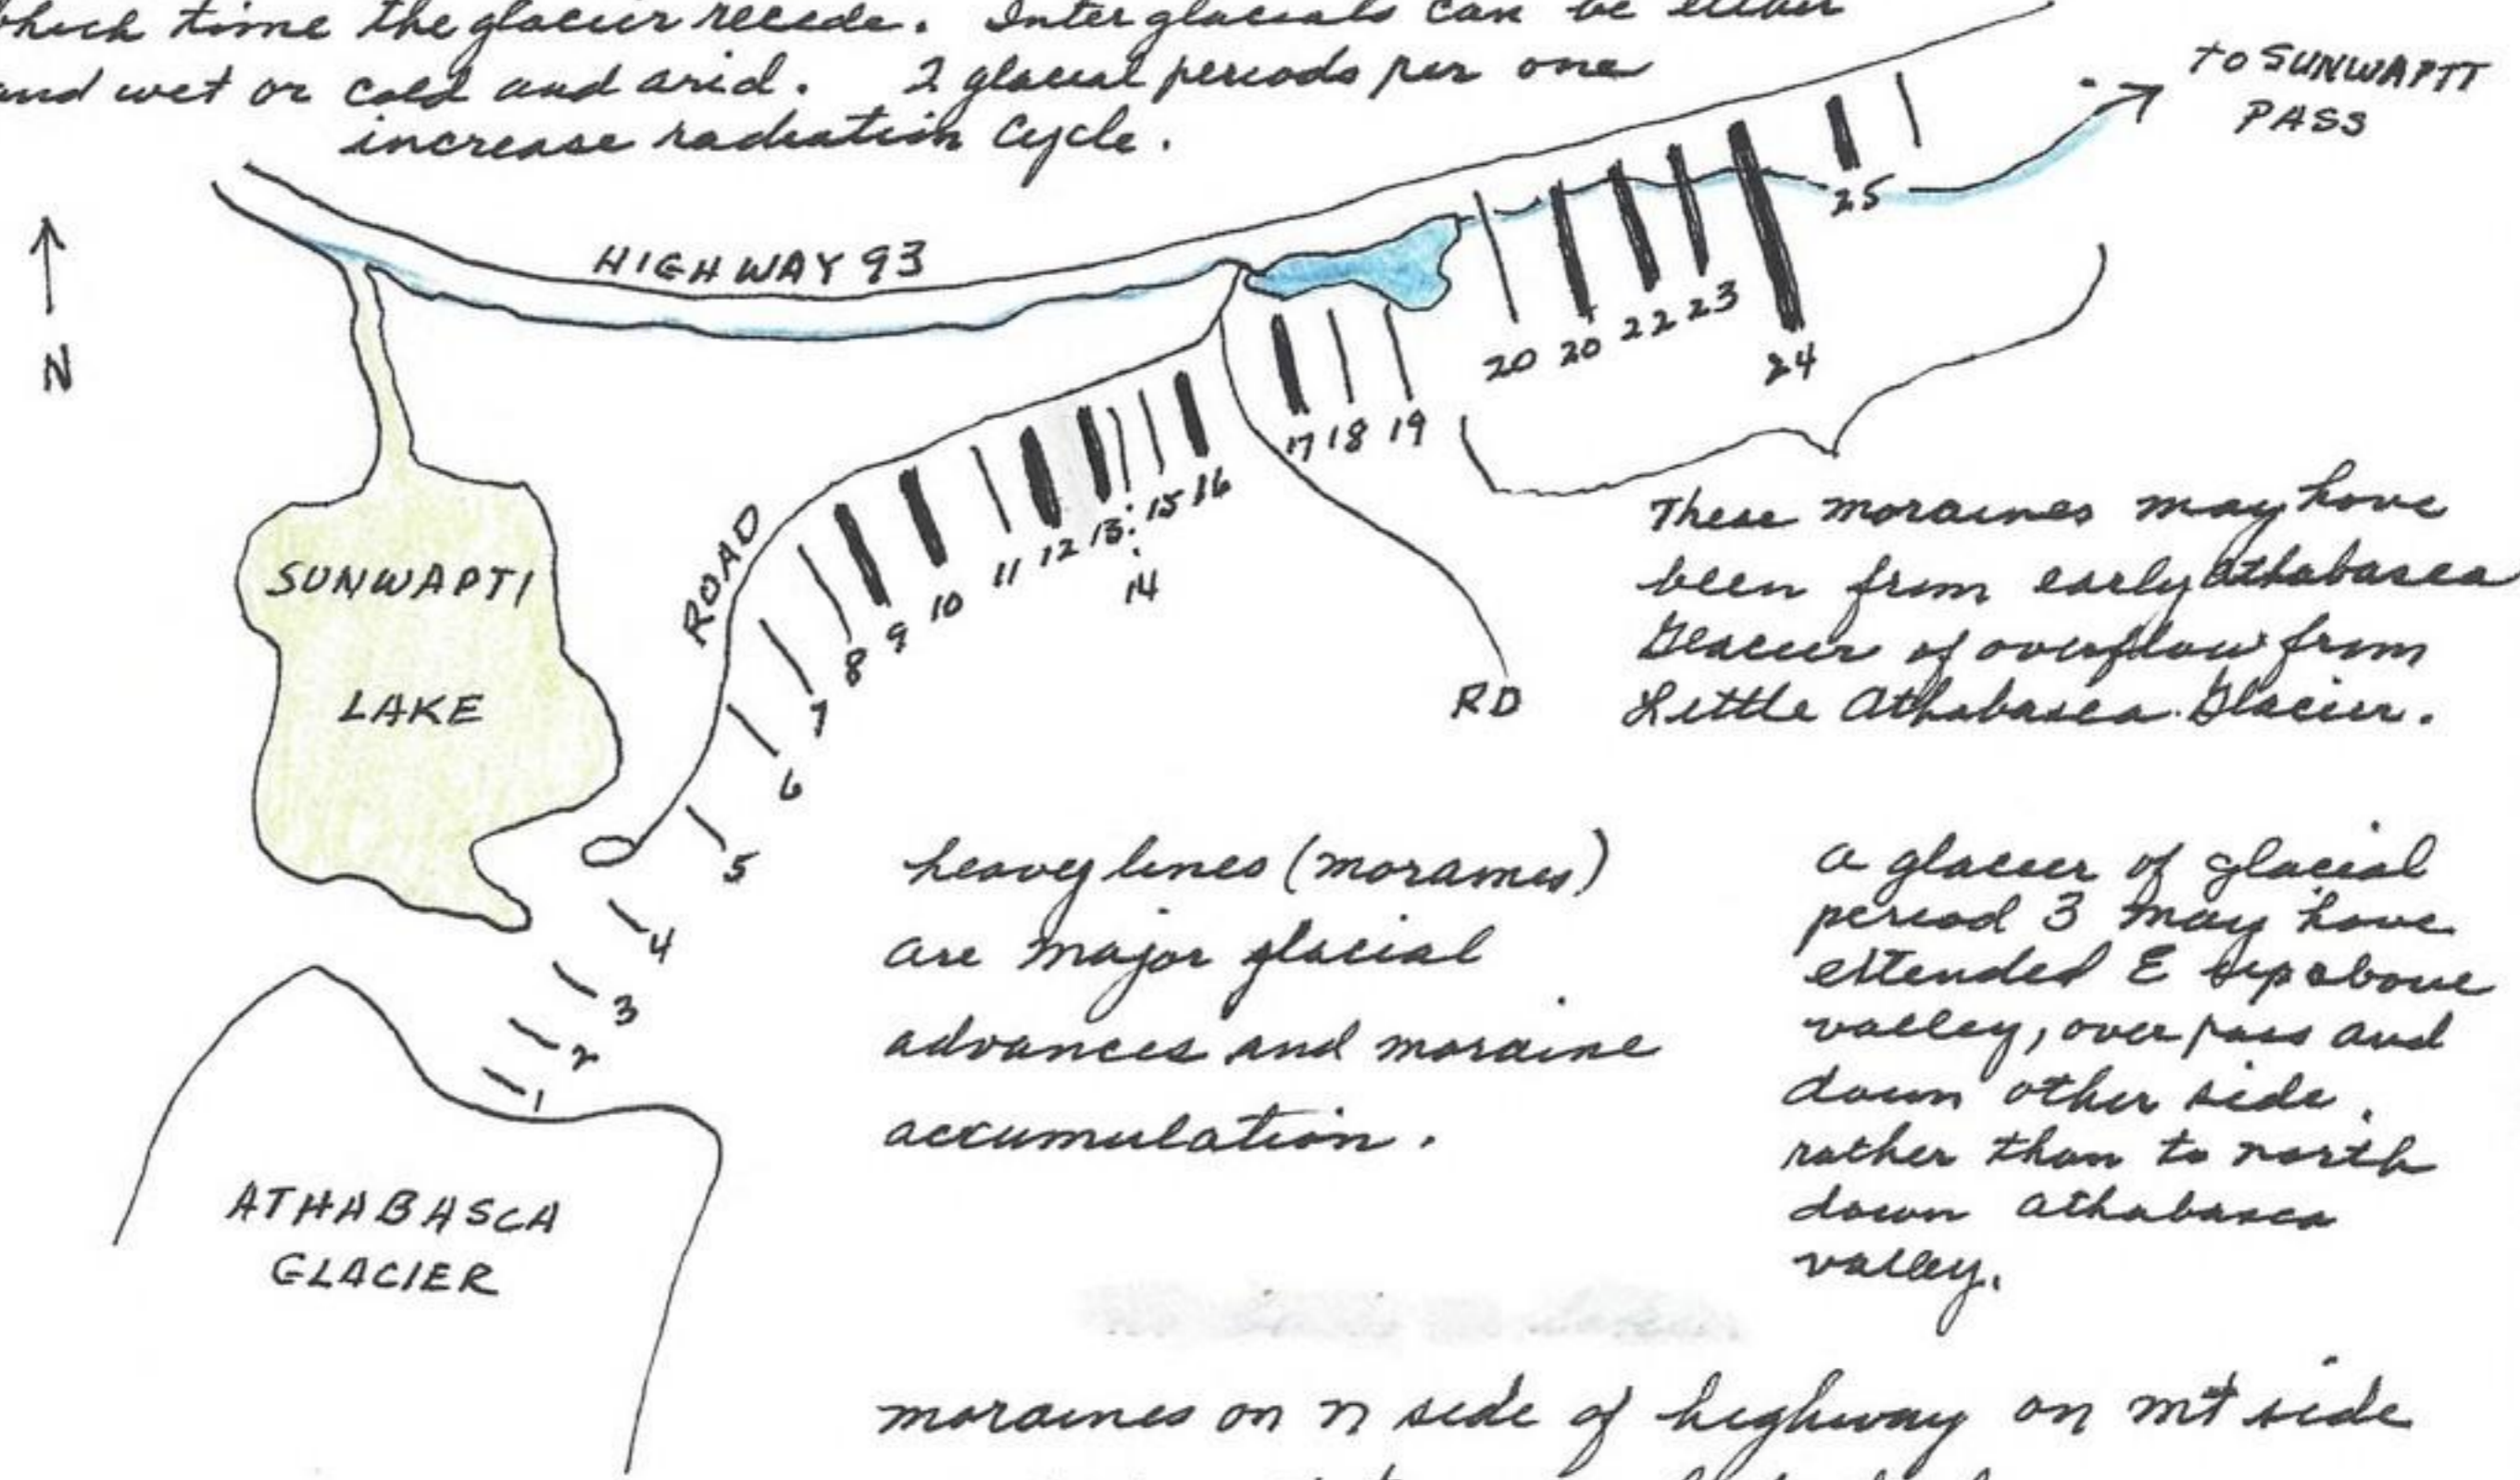 which time the glacier recede. Interglacials can be either
and wet or cold and arid. 2 glacial periods per one
increase radiation cycle.
TO SUNWAPTI
PASS
N
HIGHWAY 93
25
20 20 22 23
24
17 18 19
ROAD
8 9 10 11 12 13 15 16
14
7
6
5
4
3
2
1
RD
SUNWAPTI
LAKE
ATHABASCA
GLACIER
These moraines may have
been from early Athabasca
Glacier of overflow from
Little Athabasca Glacier.
heavey lines (moraines)
are major glacial
advances and moraine
accumulation.
a glacier of glacial
period 3 may have
extended E above
valley, over pass and
down other side,
rather than to north
down Athabasca
valley.
moraines on n side of highway on mt side